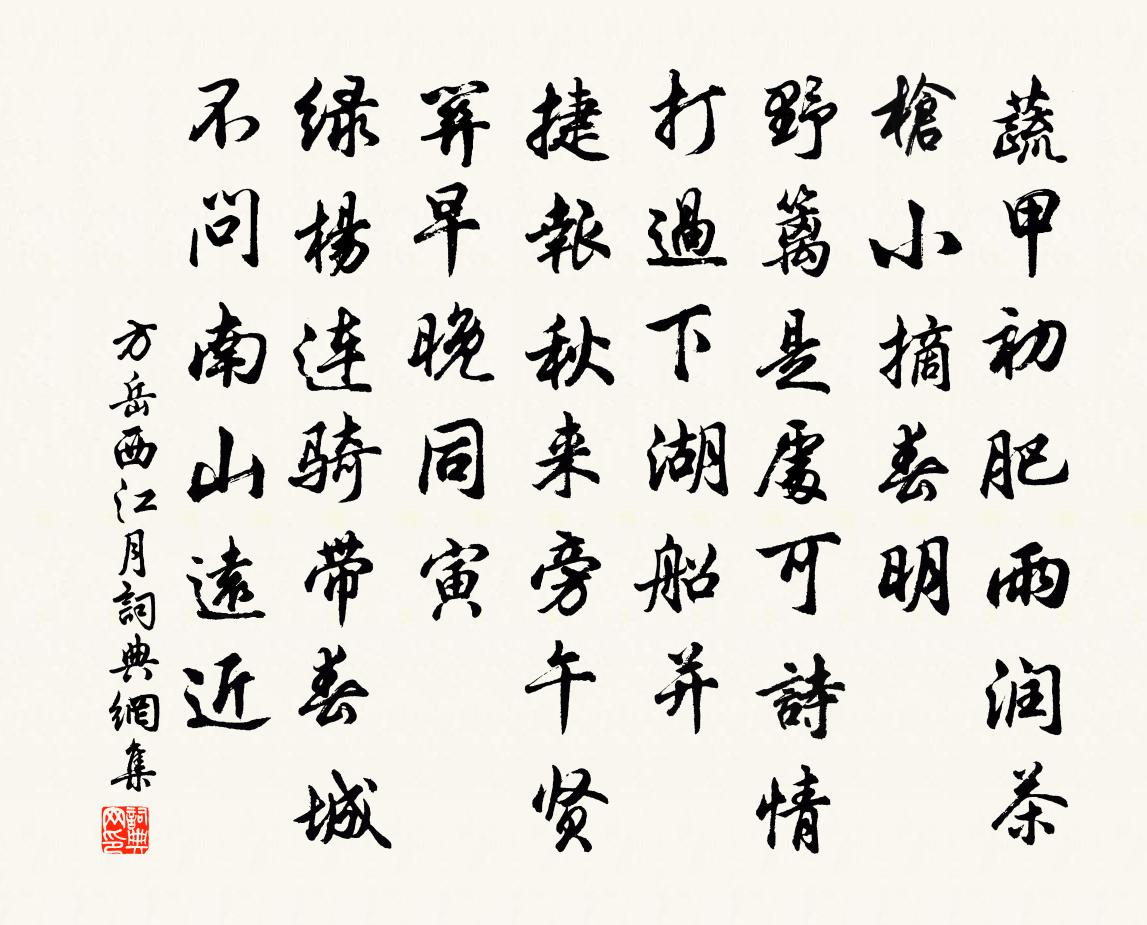 蔬甲初肥雨润茶
槍小摘春明
野篱是處可詩情
打過下湖船并
捷報秋来旁午贤
筭早晚同寅
绿楊连骑带春城
不問南山遠近
方岳西江月詞典網集
詞典
网印